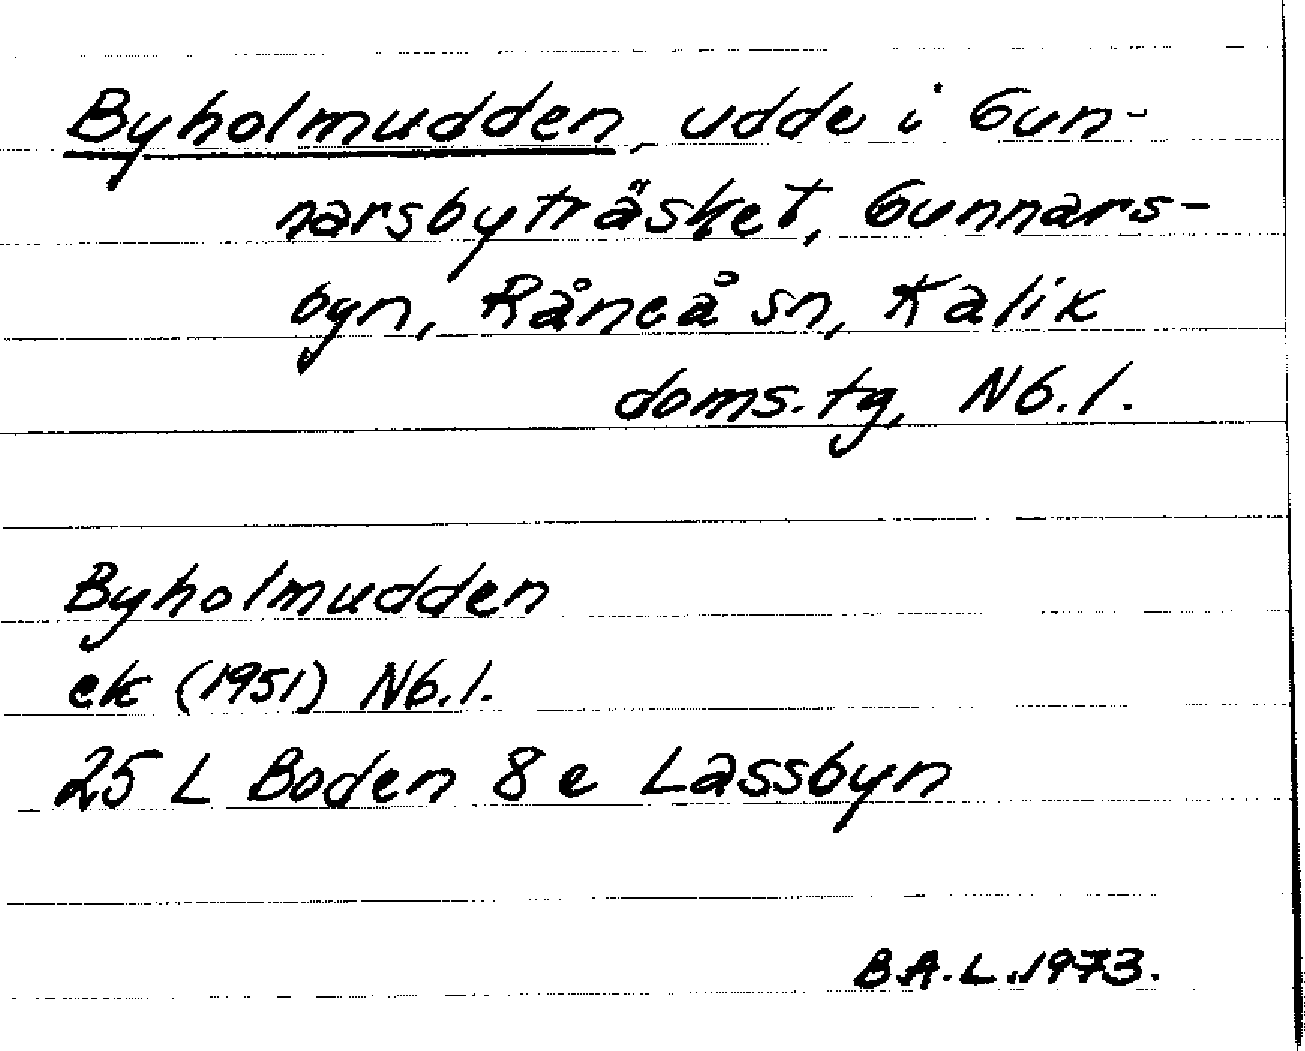 Byholmudden, udde i Gun-
narsbyträsket, Gunnars-
byn, Råneå sn, Kalix
doms.tg, Nb.l.
Byholmudden
ek (1951) Nb.l.
25 L Boden 8 e Lassbyn
B.A.L.1973.